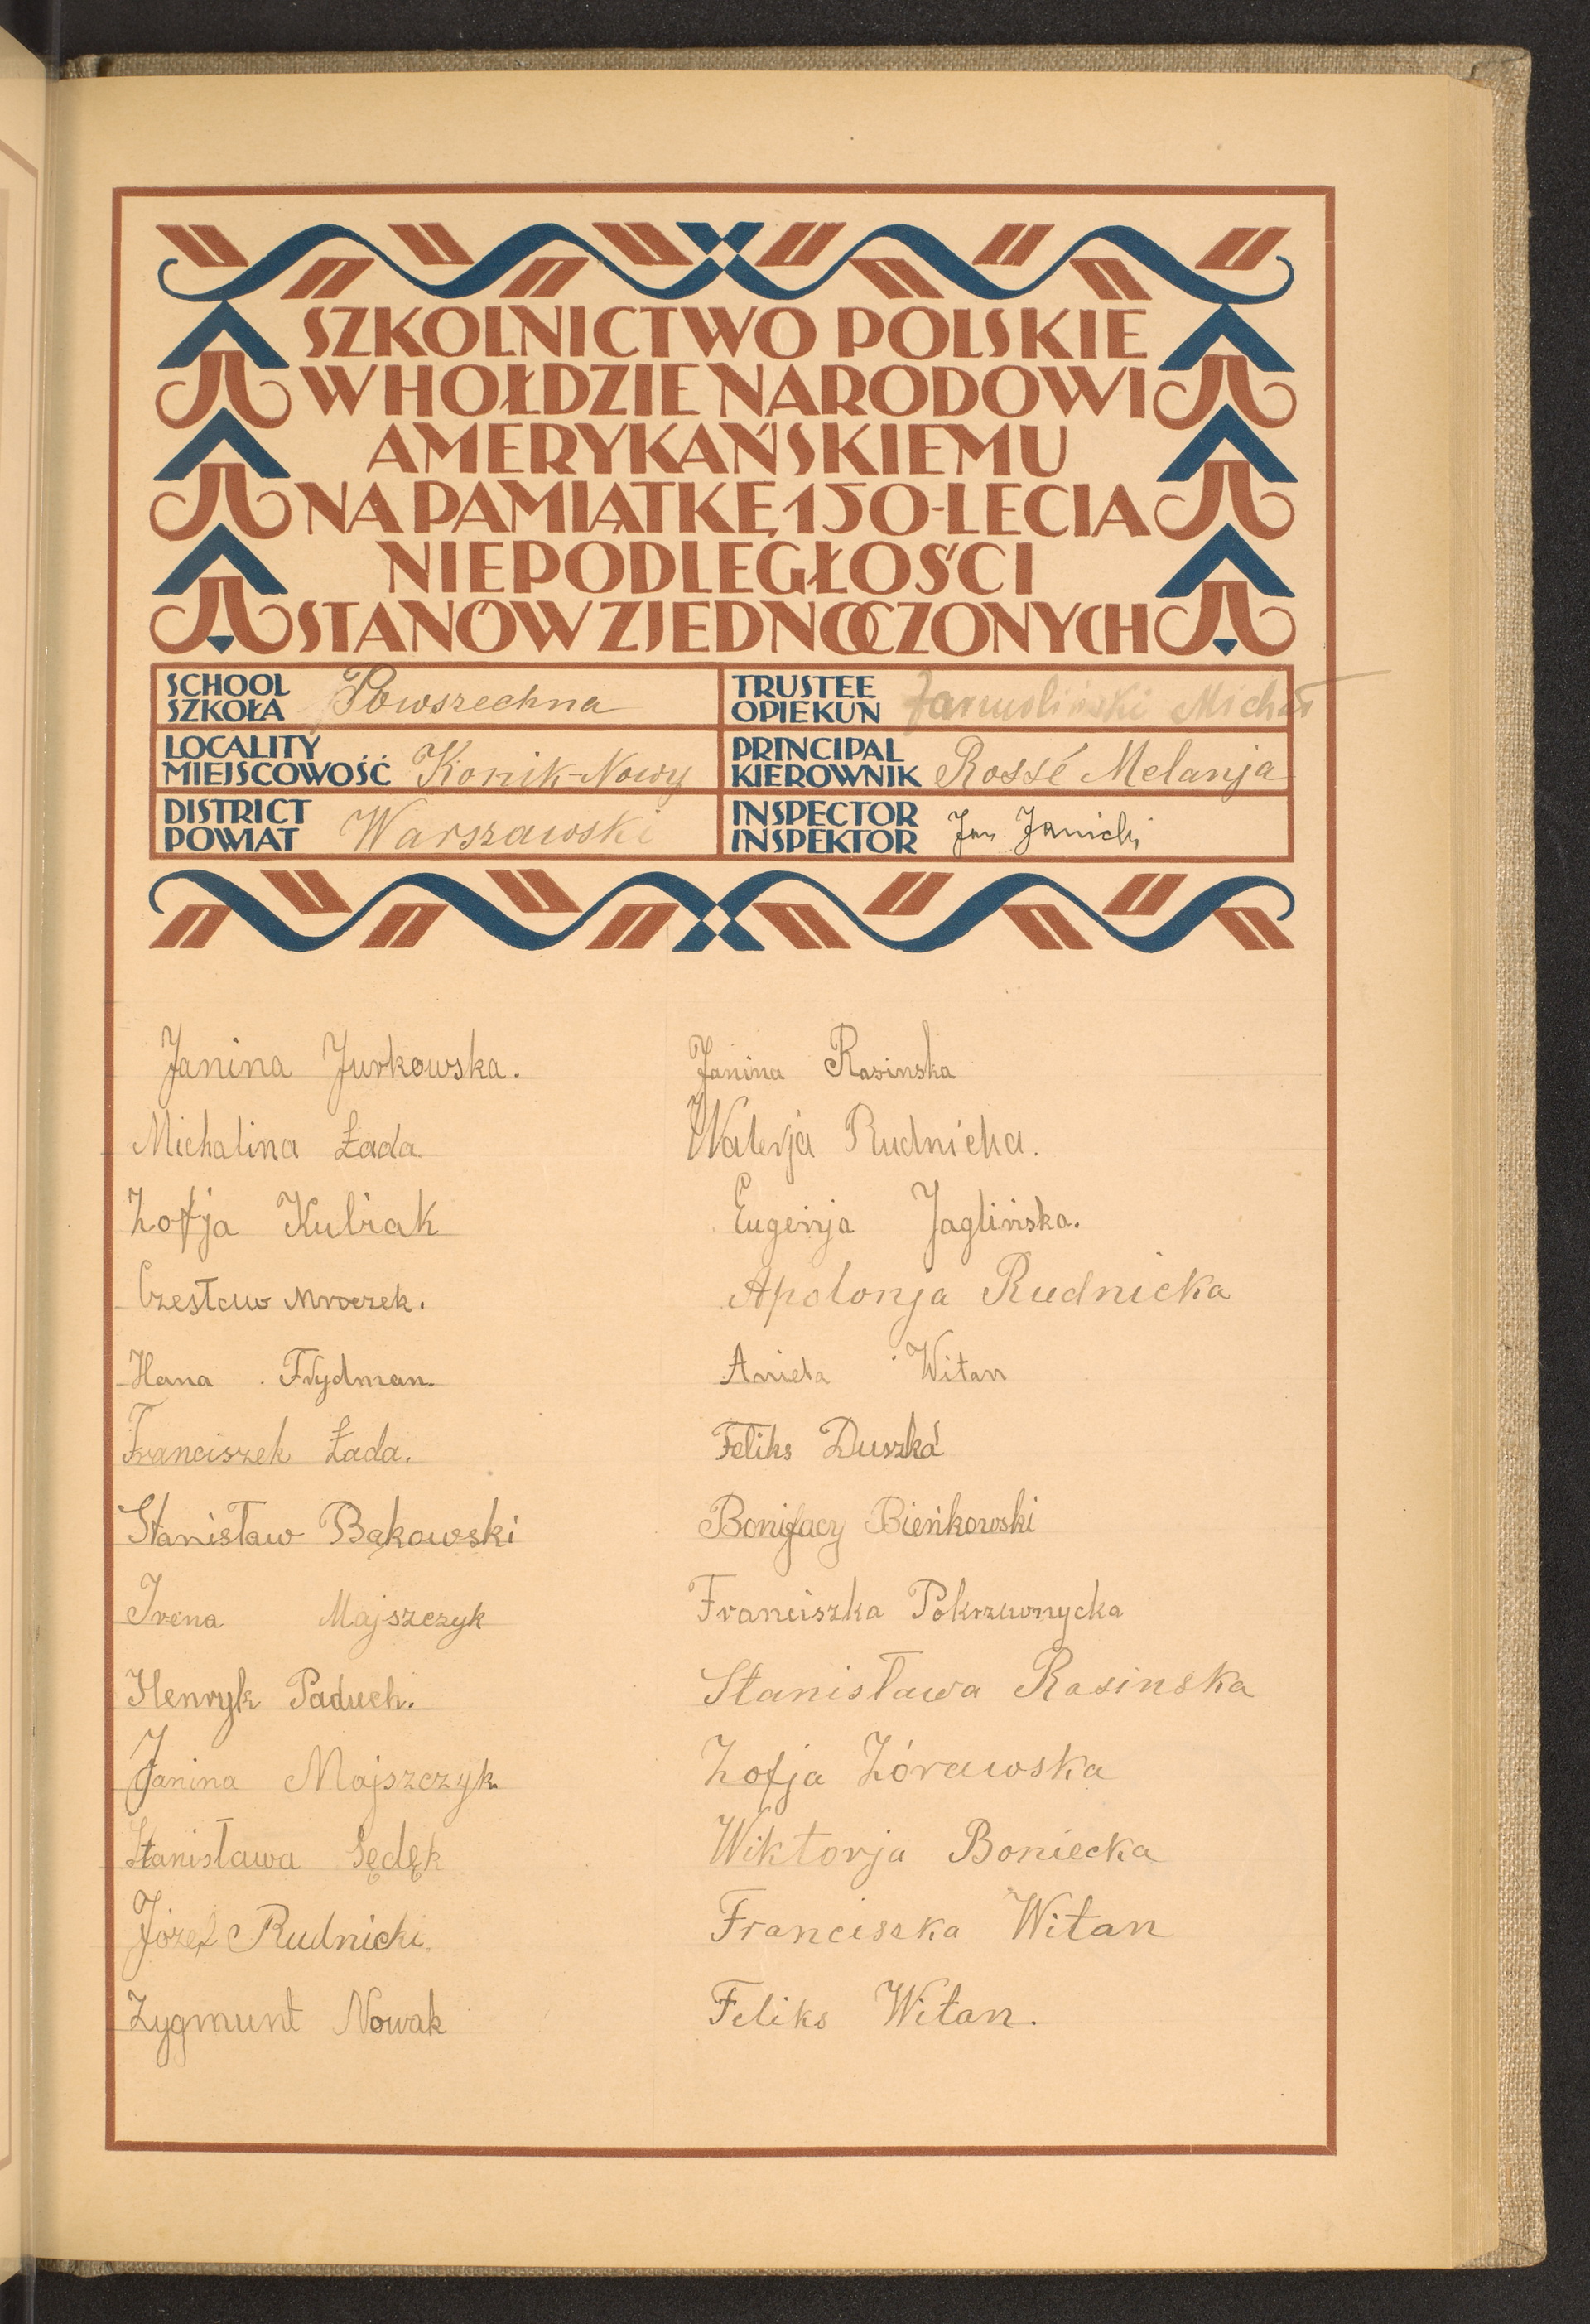 SZKOLNICTWO POLSKIE
W HOŁDZIE NARODOWI
AMERYKAŃSKIEMU
NA PAMIĄTKĘ 150-LECIA
NIEPODLEGŁOŚCI
STANÓW ZJEDNOCZONYCH
SCHOOL
SZKOŁA Powszechna
TRUSTEE
OPIEKUN Michał
LOCALITY
MIEJSCOWOŚĆ Konik-Nowy
PRINCIPAL
KIEROWNIK Rossé Melanja
DISTRICT
POWIAT Warszawski
INSPECTOR
INSPEKTOR Jan Janicki
Janina Jurkowska.
Michalina Łada
Zofja Kubiak
Czesław Mroczek.
Hana Frydman.
Franciszek Łada.
Stanisław Bąkowski
Irena Majszczyk
Henryk Paduch.
Janina Majszczyk
Stanisława Sędęk
Józef Rudnicki.
Zygmunt Nowak
Janina Rasinska
Walerja Rudnicka.
Eugenja Jaglińska.
Apolonja Rudnicka
Aniela Witan
Feliks Duszka
Bonifacy Bieńkowski
Franciszka Pokrzywnycka
Stanisława Rasinska
Zofja Żórawska
Wiktorja Boniecka
Franciszka Witan
Feliks Witan.